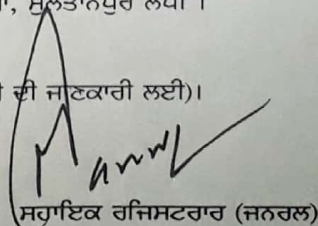 ਸੁਲਤਾਨਪੁਰ ਲੋਧੀ ।
ਦੀ ਜਾਣਕਾਰੀ ਲਈ)।
ਸਹਾਇਕ ਰਜਿਸਟਰਾਰ (ਜਨਰਲ)